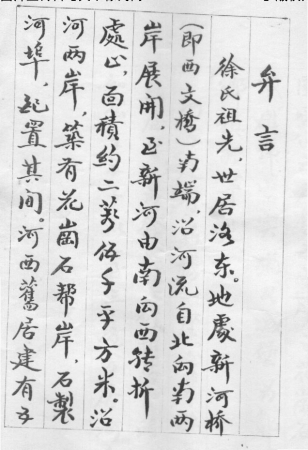 弁言
徐氏祖先，世居洛东。地處新河桥
（即西文橋）南端，沿河流自北向南两
岸展開，至新河由南向西转折
處止，面積約二萬伍千平方米。沿
河两岸，築有花崗石帮岸，石製
河埠，配置其间。河西舊居建有五